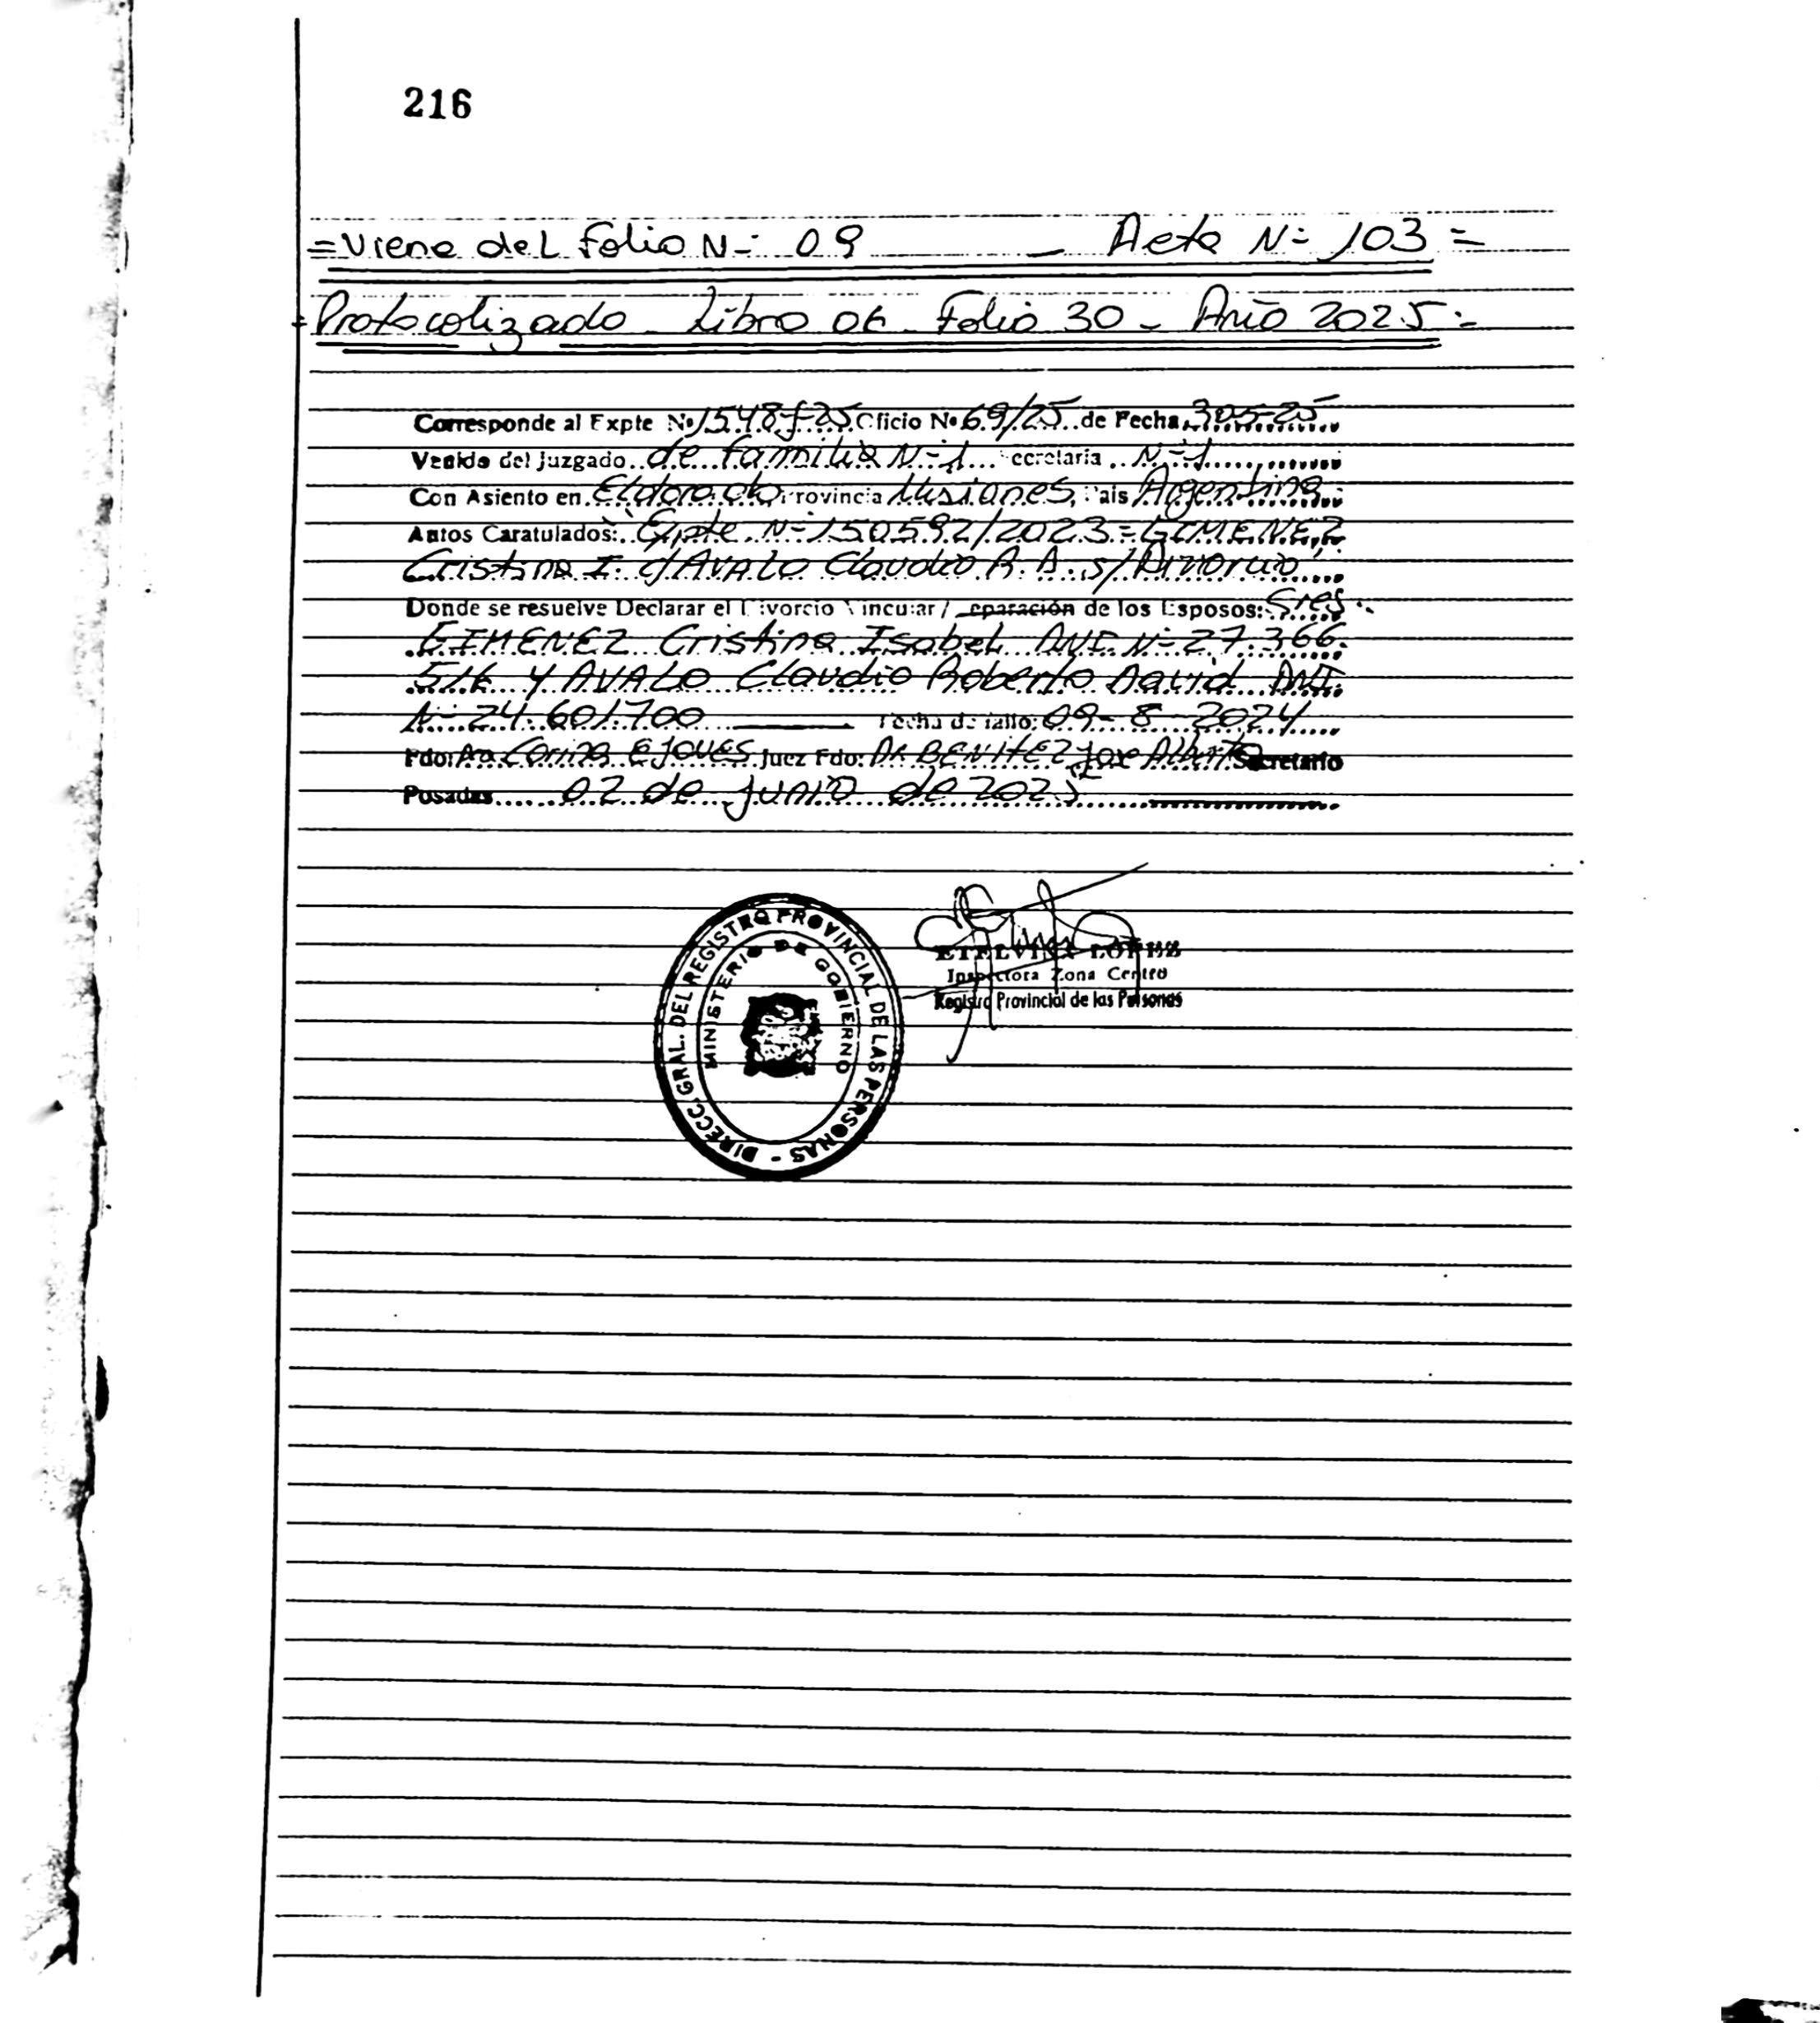 216
=Viene del Folio N-: 09 _ Acta N-: 103=
=Protocolizado _ Libro 06 _ Folio 30 _ Año 2025=
Corresponde al Expte Nº 1548-J-25 Oficio Nº 69/25 de Fecha 30-5-25
Venido del Juzgado de Familia N-: 1 ecretaria N-: 1
Con Asiento en Eldorado, Provincia Misiones, País Argentina
Autos Caratulados: "Expte. N-: 150592/2023= GIMENEZ
Cristina I. c/ AVALO Claudio R. D. s/ Divorcio"
Donde se resuelve Declarar el Divorcio Vincular / eparación de los Esposos: Sres.
GIMENEZ Cristina Isabel DNI. N-: 27.366.
516 Y AVALO Claudio Roberto David DNI.
N-: 24.601.700 Fecha de fallo: 09-8-2024
Fdo: Dra Corina Juez Fdo: Dr BENITEZ Jose Alberto Secretario
Posadas 02 de Junio de 2025
DIRECC. GRAL. DEL REGISTRO PROVINCIAL DE LAS PERSONAS -
MINISTERIO DE GOBIERNO
ETELVINA LOPEZ
Inspectora Zona Centro
Registro Provincial de las Personas